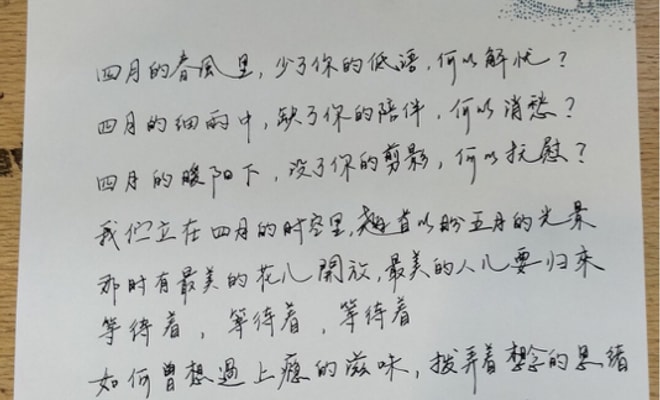 四月的春風里，少了你的低语，何以解忧？
四月的细雨中，缺了你的陪伴，何以消愁？
四月的暖阳下，没了你的剪影，何以抚慰？
我们立在四月的时空里，首以盼五月的光景
那时有最美的花儿開放，最美的人儿要归来
等待着，等待着，等待着
如何曾想過上瘾的滋味，拨弄着想念的思绪